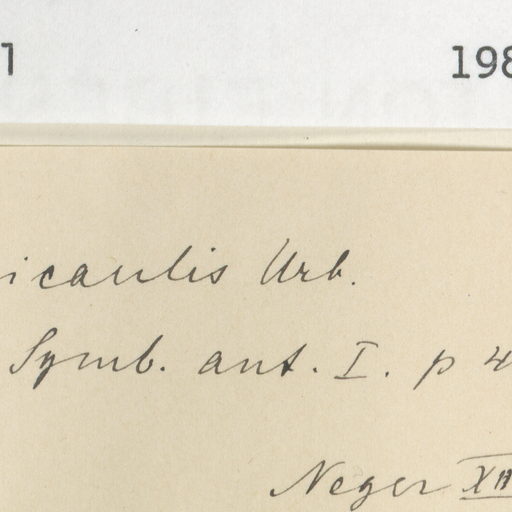 1 198
icaulis Urb.
Symb. ant. I. p 4
Neger XII